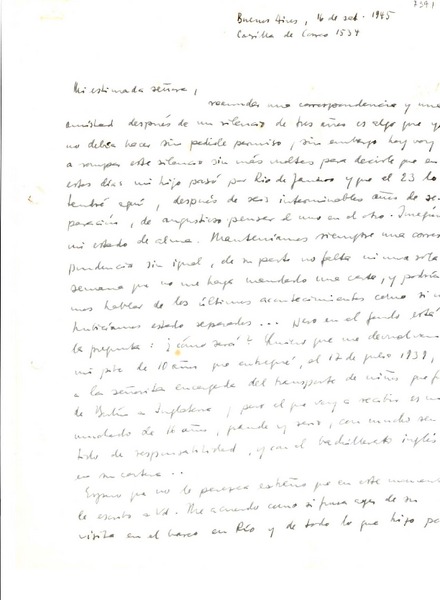 7341
Buenos Aires, 16 de set. 1945
Casilla de Correo 1534
Mi estimada señora,
reanudar una correspondencia y una
amistad después de un silencio de tres años es algo que yo
no debía hacer sin pedirle permiso, sin embargo hoy voy
a romper este silencio sin más vueltas para decirle que en
estos días mi hijo pasó por Rio de Janeiro y que el 23 lo
tendré aquí, después de seis interminables años de se-
paración, de angustioso pensar el uno en el otro. Imagine
mi estado de alma. Manteníamos siempre una corres-
pondencia sin igual, de su parte no falta ni una sola
semana que no me haya mandado una carta, y podría-
mos hablar de los últimos acontecimientos como si no
hubiéramos estado separados... Pero en el fondo está
la pregunta: ¿¡cómo será!? Quiero que me devuelvan
mi pibe de 10 años que entregué, el 12 de julio 1939,
a la señorita encargada del transporte de niños que
de Berlín a Inglaterra, pero el que voy a recibir es un
muchacho de 16 años, grande y serio, con mucho sen-
tido de responsabilidad, y con el bachillerato inglés
en su cartera...
Espero que no le parezca extraño que en este momento
le escriba a Ud. Me acuerdo como si fuera ayer de su
visita en el barco en Río y de todo lo que hizo por